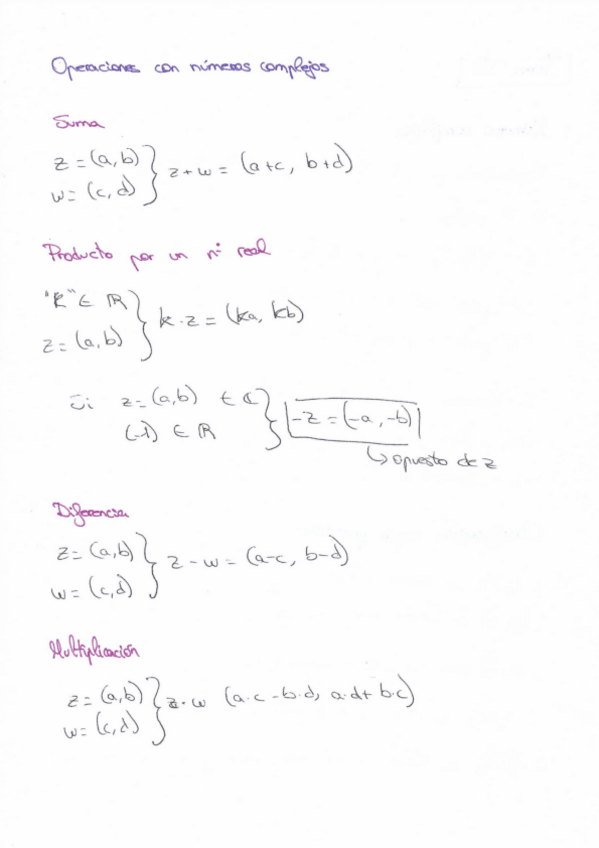 Operaciones con números complejos
Suma
z = (a, b)
w = (c, d)
z + w = (a+c, b+d)
Producto por un nº real
"k" ∈ ℝ
z = (a, b)
k · z = (ka, kb)
Si z = (a, b) ∈ ℂ
(-1) ∈ ℝ
-z = (-a, -b)
↳ opuesto de z
Diferencia
z = (a, b)
w = (c, d)
z - w = (a-c, b-d)
Multiplicación
z = (a, b)
w = (c, d)
z · w (a·c - b·d, a·d + b·c)